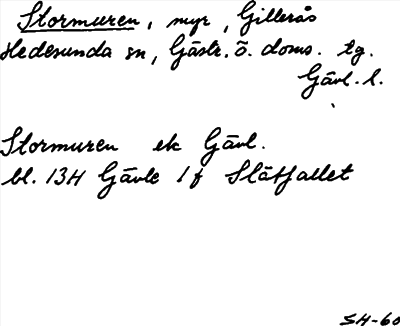 Stormuren, myr, Gillerås
Hedesunda sn, Gästr. ö. doms. tg.
Gävl. l.
Stormuren ek Gävl.
bl. 13H Gävle 1f Slåtfallet
SH-60